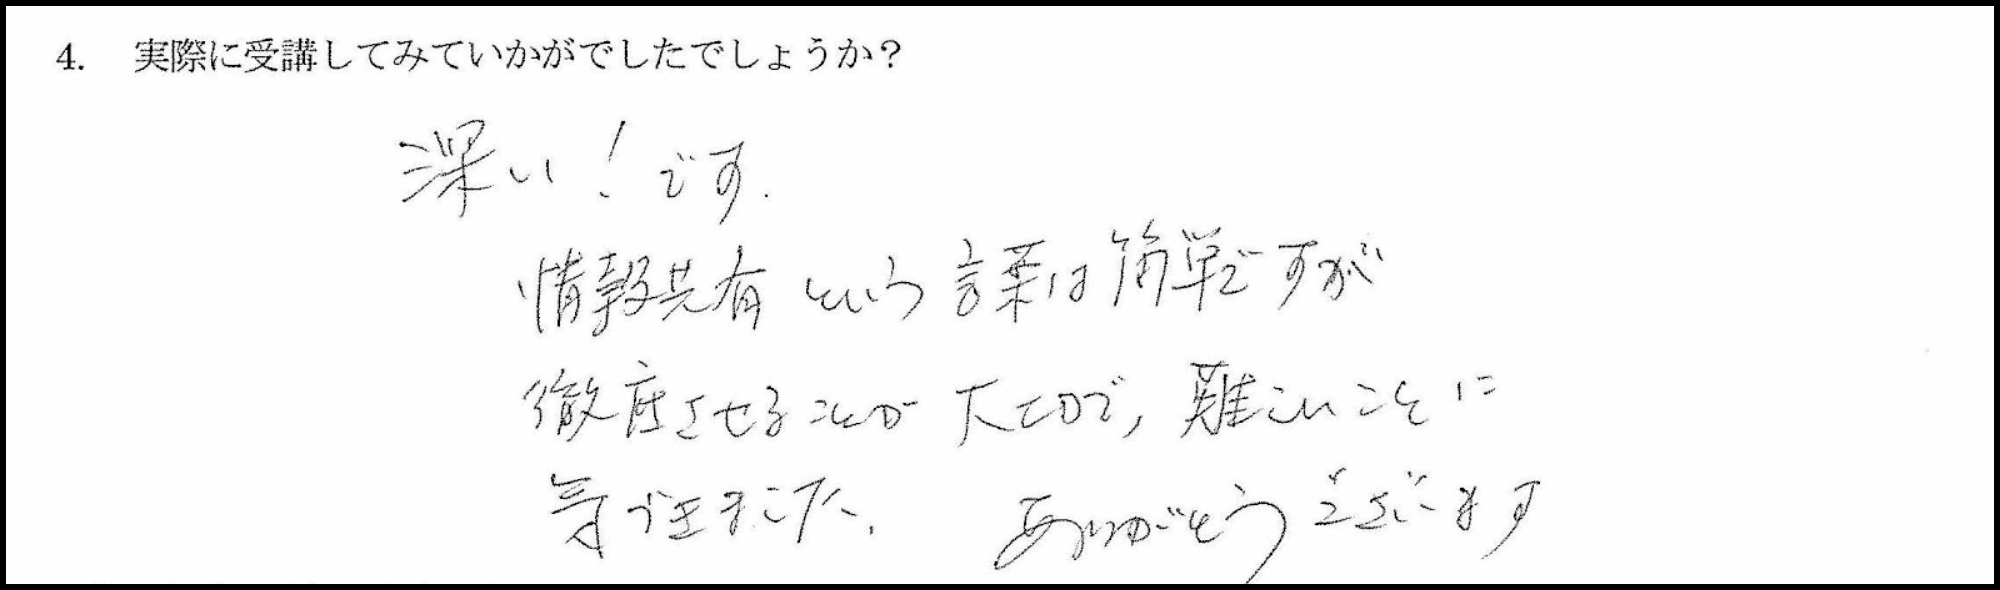 4. 実際に受講してみていかがでしたでしょうか?
深い!です.
情報共有という言葉は簡単ですが
徹底させることが大切で,難しいことに
気づきました. ありがとうございます